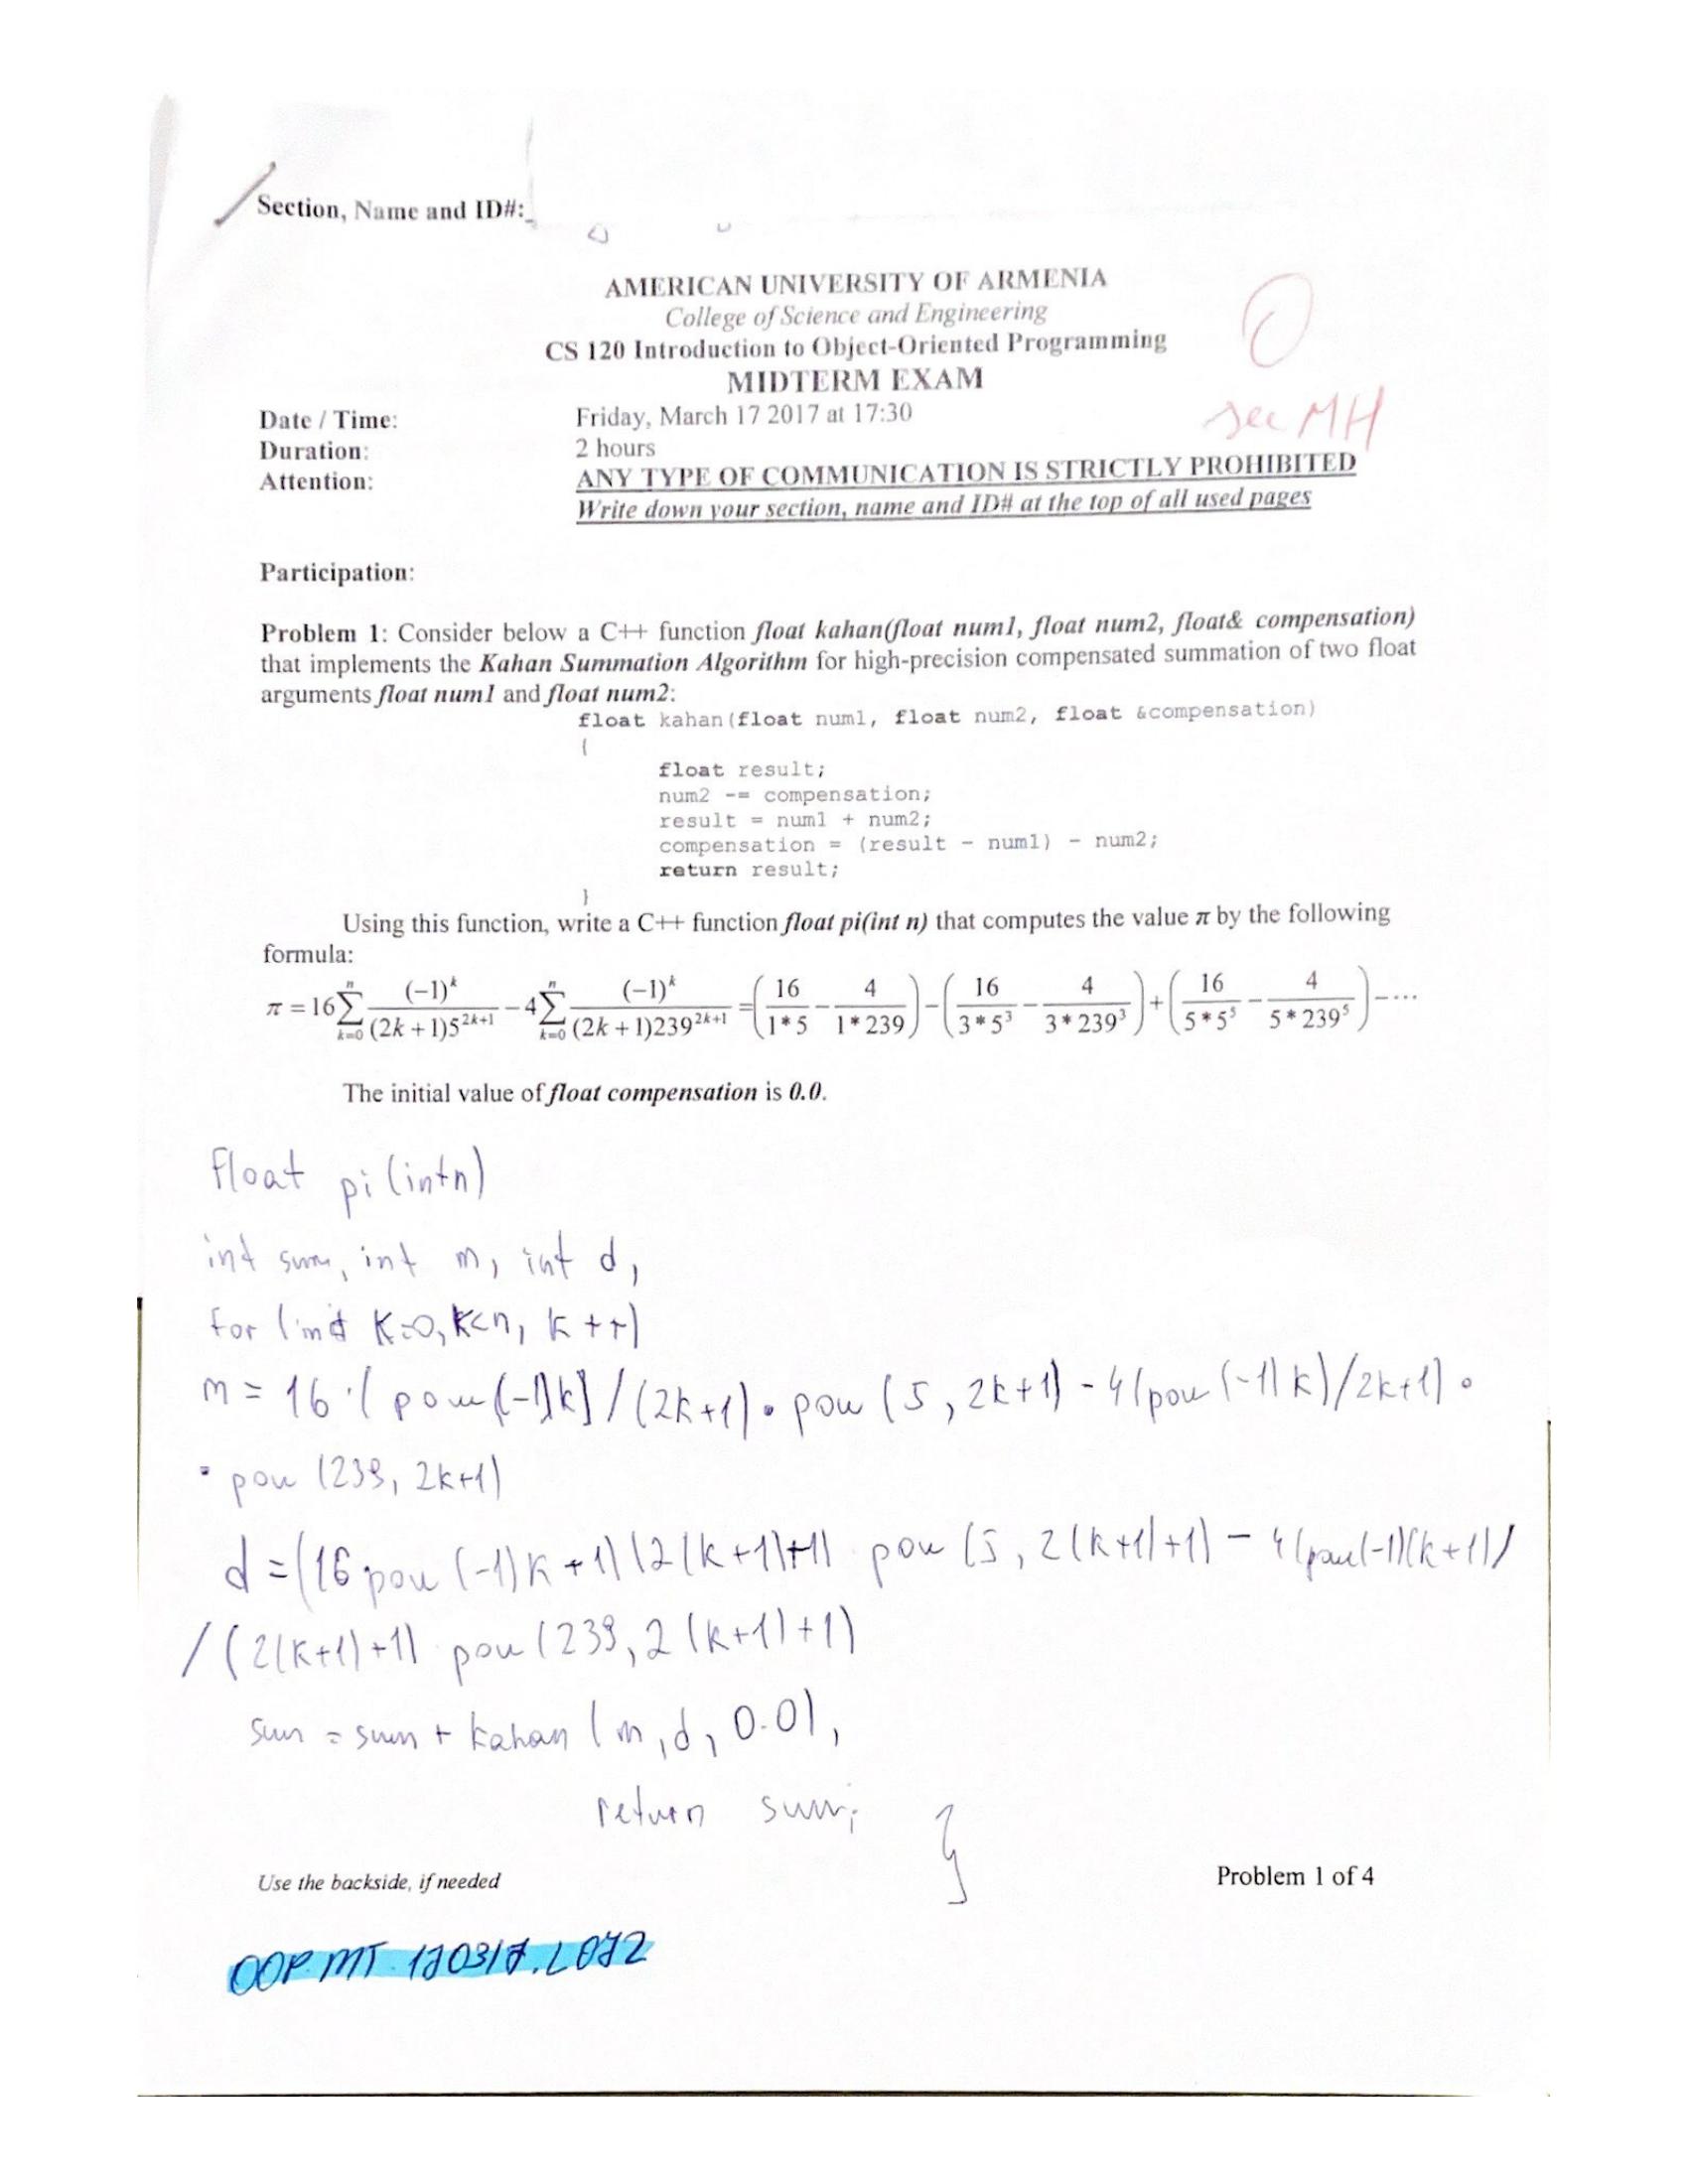 Section, Name and ID#:
AMERICAN UNIVERSITY OF ARMENIA
College of Science and Engineering
CS 120 Introduction to Object-Oriented Programming
MIDTERM EXAM
0
see MH
Date / Time: Friday, March 17 2017 at 17:30
Duration: 2 hours
Attention: ANY TYPE OF COMMUNICATION IS STRICTLY PROHIBITED
Write down your section, name and ID# at the top of all used pages
Participation:
Problem 1: Consider below a C++ function float kahan(float num1, float num2, float& compensation)
that implements the Kahan Summation Algorithm for high-precision compensated summation of two float
arguments float num1 and float num2:
float kahan(float num1, float num2, float &compensation)
{
float result;
num2 -= compensation;
result = num1 + num2;
compensation = (result - num1) - num2;
return result;
}
Using this function, write a C++ function float pi(int n) that computes the value π by the following
formula:
π = 16 ∑_{k=0}^{n} (-1)^k / ((2k+1)5^{2k+1}) - 4 ∑_{k=0}^{n} (-1)^k / ((2k+1)239^{2k+1}) = (16/(1*5) - 4/(1*239)) - (16/(3*5^3) - 4/(3*239^3)) + (16/(5*5^5) - 4/(5*239^5)) - ...
The initial value of float compensation is 0.0.
float pi (int n)
int sum, int m, int d,
for (int k=0, k<n, k++)
m = 16 · ( pow (-1)k) / (2k+1) · pow (5, 2k+1) - 4 (pow (-1) k) / 2k+1) ·
· pow (239, 2k+1)
d = (16 pow (-1) k+1) (2(k+1)+1) pow (5, 2(k+1)+1) - 4 (pow(-1)(k+1) /
/ (2(k+1)+1) pow (239, 2(k+1)+1)
sum = sum + kahan (m, d, 0.0),
return sum;
}
Use the backside, if needed
Problem 1 of 4
OOP.MT.170317.L072